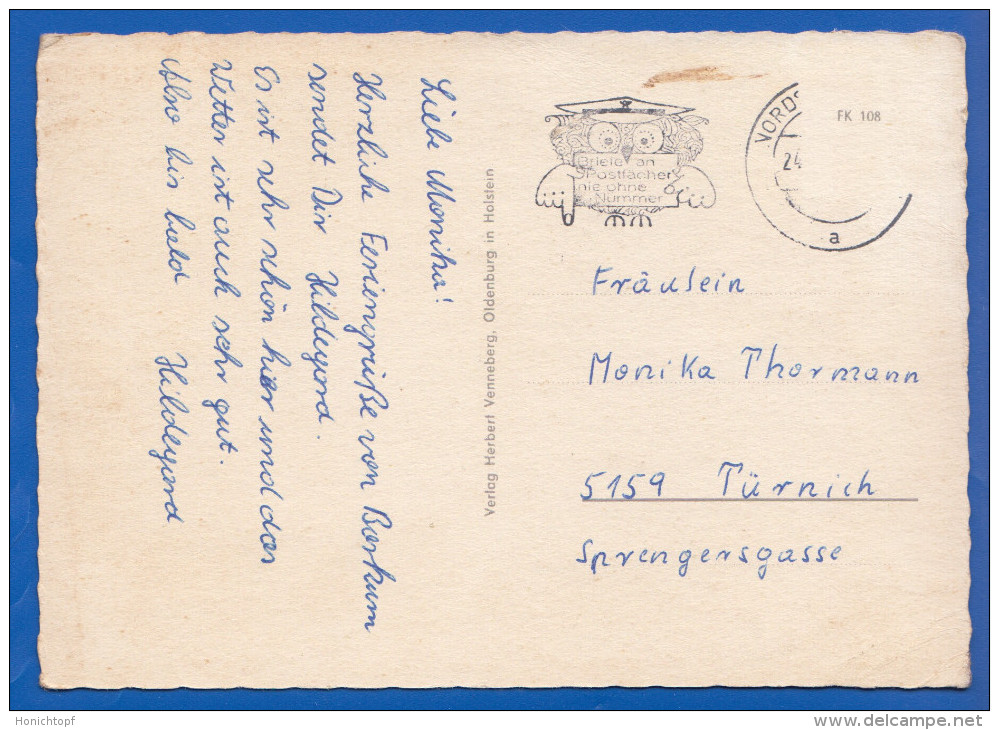 Liebe Monika!
Herzliche Feriengrüße von Borkum
sendet Dir Hildegard.
Es ist sehr schön hier und das
Wetter ist auch sehr gut.
Also bis bald Hildegard
Verlag Herbert Venneberg, Oldenburg in Holstein
Briefe an
Postfächer
nie ohne
Nummer
VORDS
24.
a
FK 108
Fräulein
Monika Thormann
5159 Türnich
Sprengersgasse
Honichtopf
delcampe.net